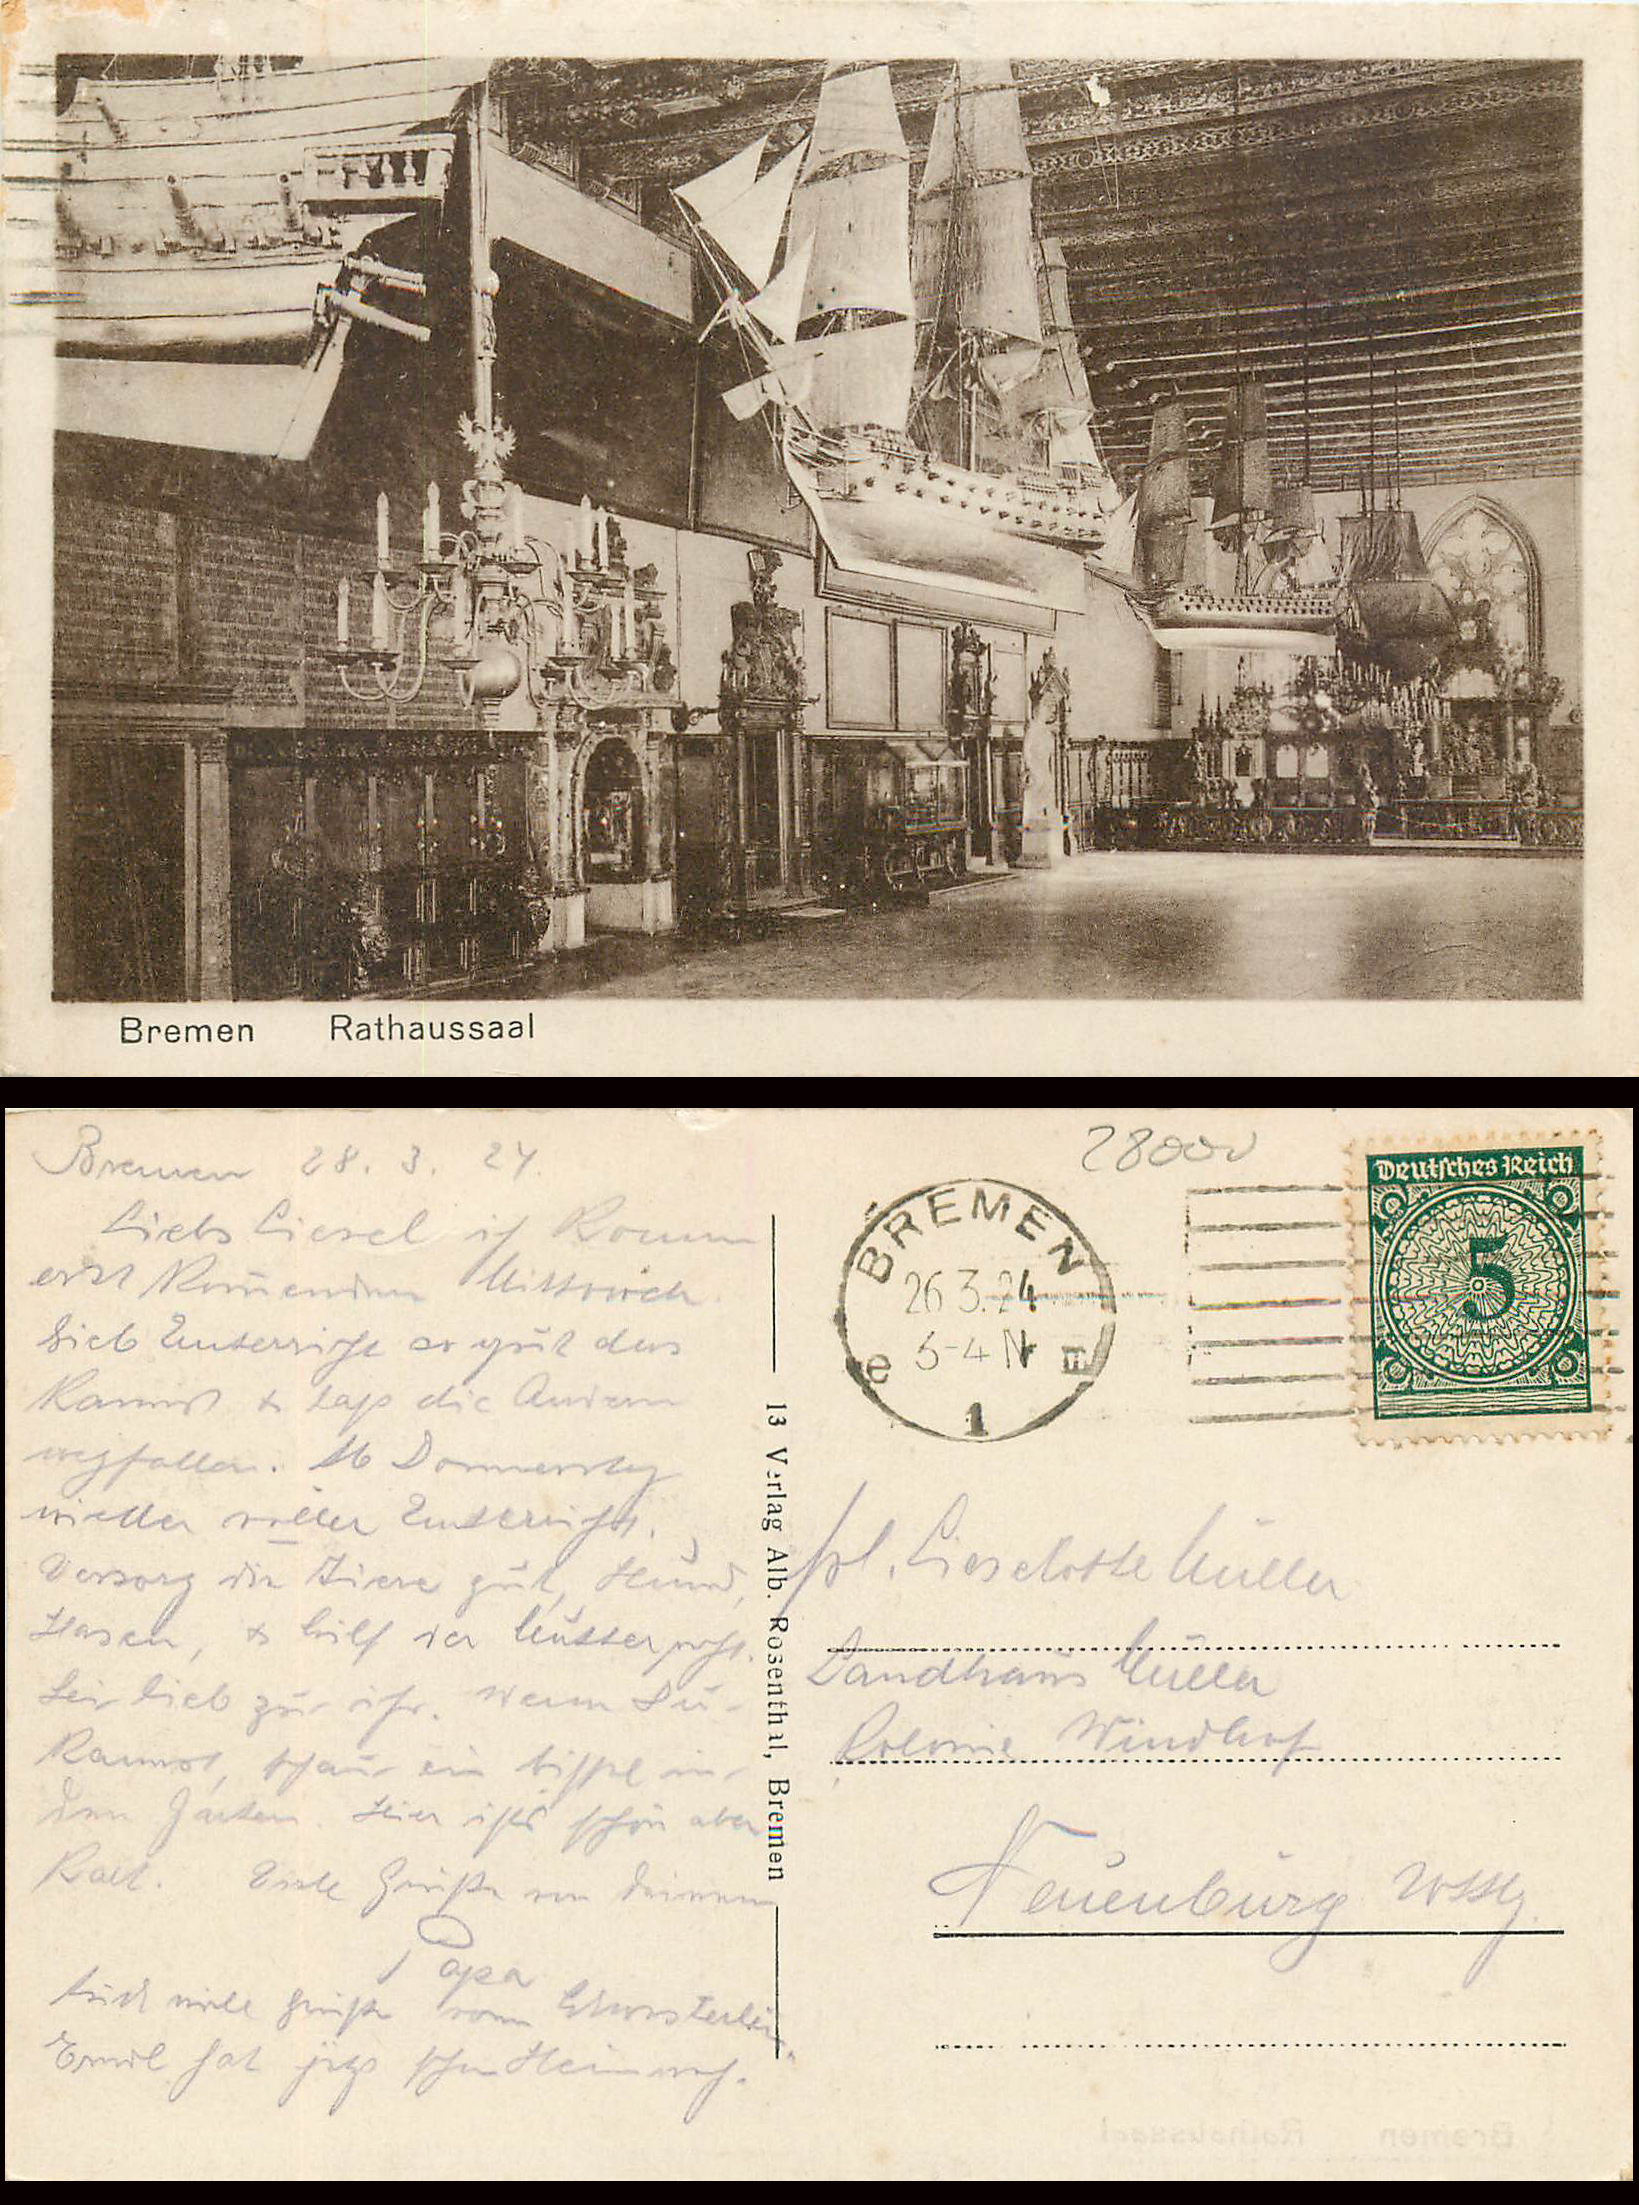 Bremen Rathaussaal
Bremen 28. 3. 24.
Liebs Liesel ich komm
erst kommenden Mittwoch.
Gieb Unterricht so gut du's
kannst & lass die Andern
wegfallen. Ab Donnerstag
wieder voller Unterricht.
Versorg die Tiere gut, Hund,
Hasen, & hilf der Mutter
Sei lieb zu ihr. Wenn Du
kannst, schau ein bissel in
den Garten. Hier ists schön aber
kalt. Viele Grüsse von Deinem
Papa
Auch viele Grüsse vom
Emil hat jetzt schon Heimweh.
13 Verlag Alb. Rosenthal, Bremen
28000
BREMEN
26.3.24
3-4 N
e E
1
Deutsches Reich
5
Frl. Lieselotte Müller
Landhaus Müller
Kolonie Windhof
Neuenbürg Wttbg.